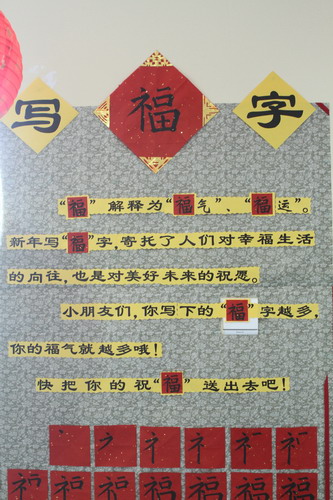 写福字
“福”解释为“福气”、“福运”。
新年写“福”字，寄托了人们对幸福生活
的向往，也是对美好未来的祝愿。
小朋友们，你写下的“福”字越多，
你的福气就越多哦！
快把你的祝“福”送出去吧！
福福福